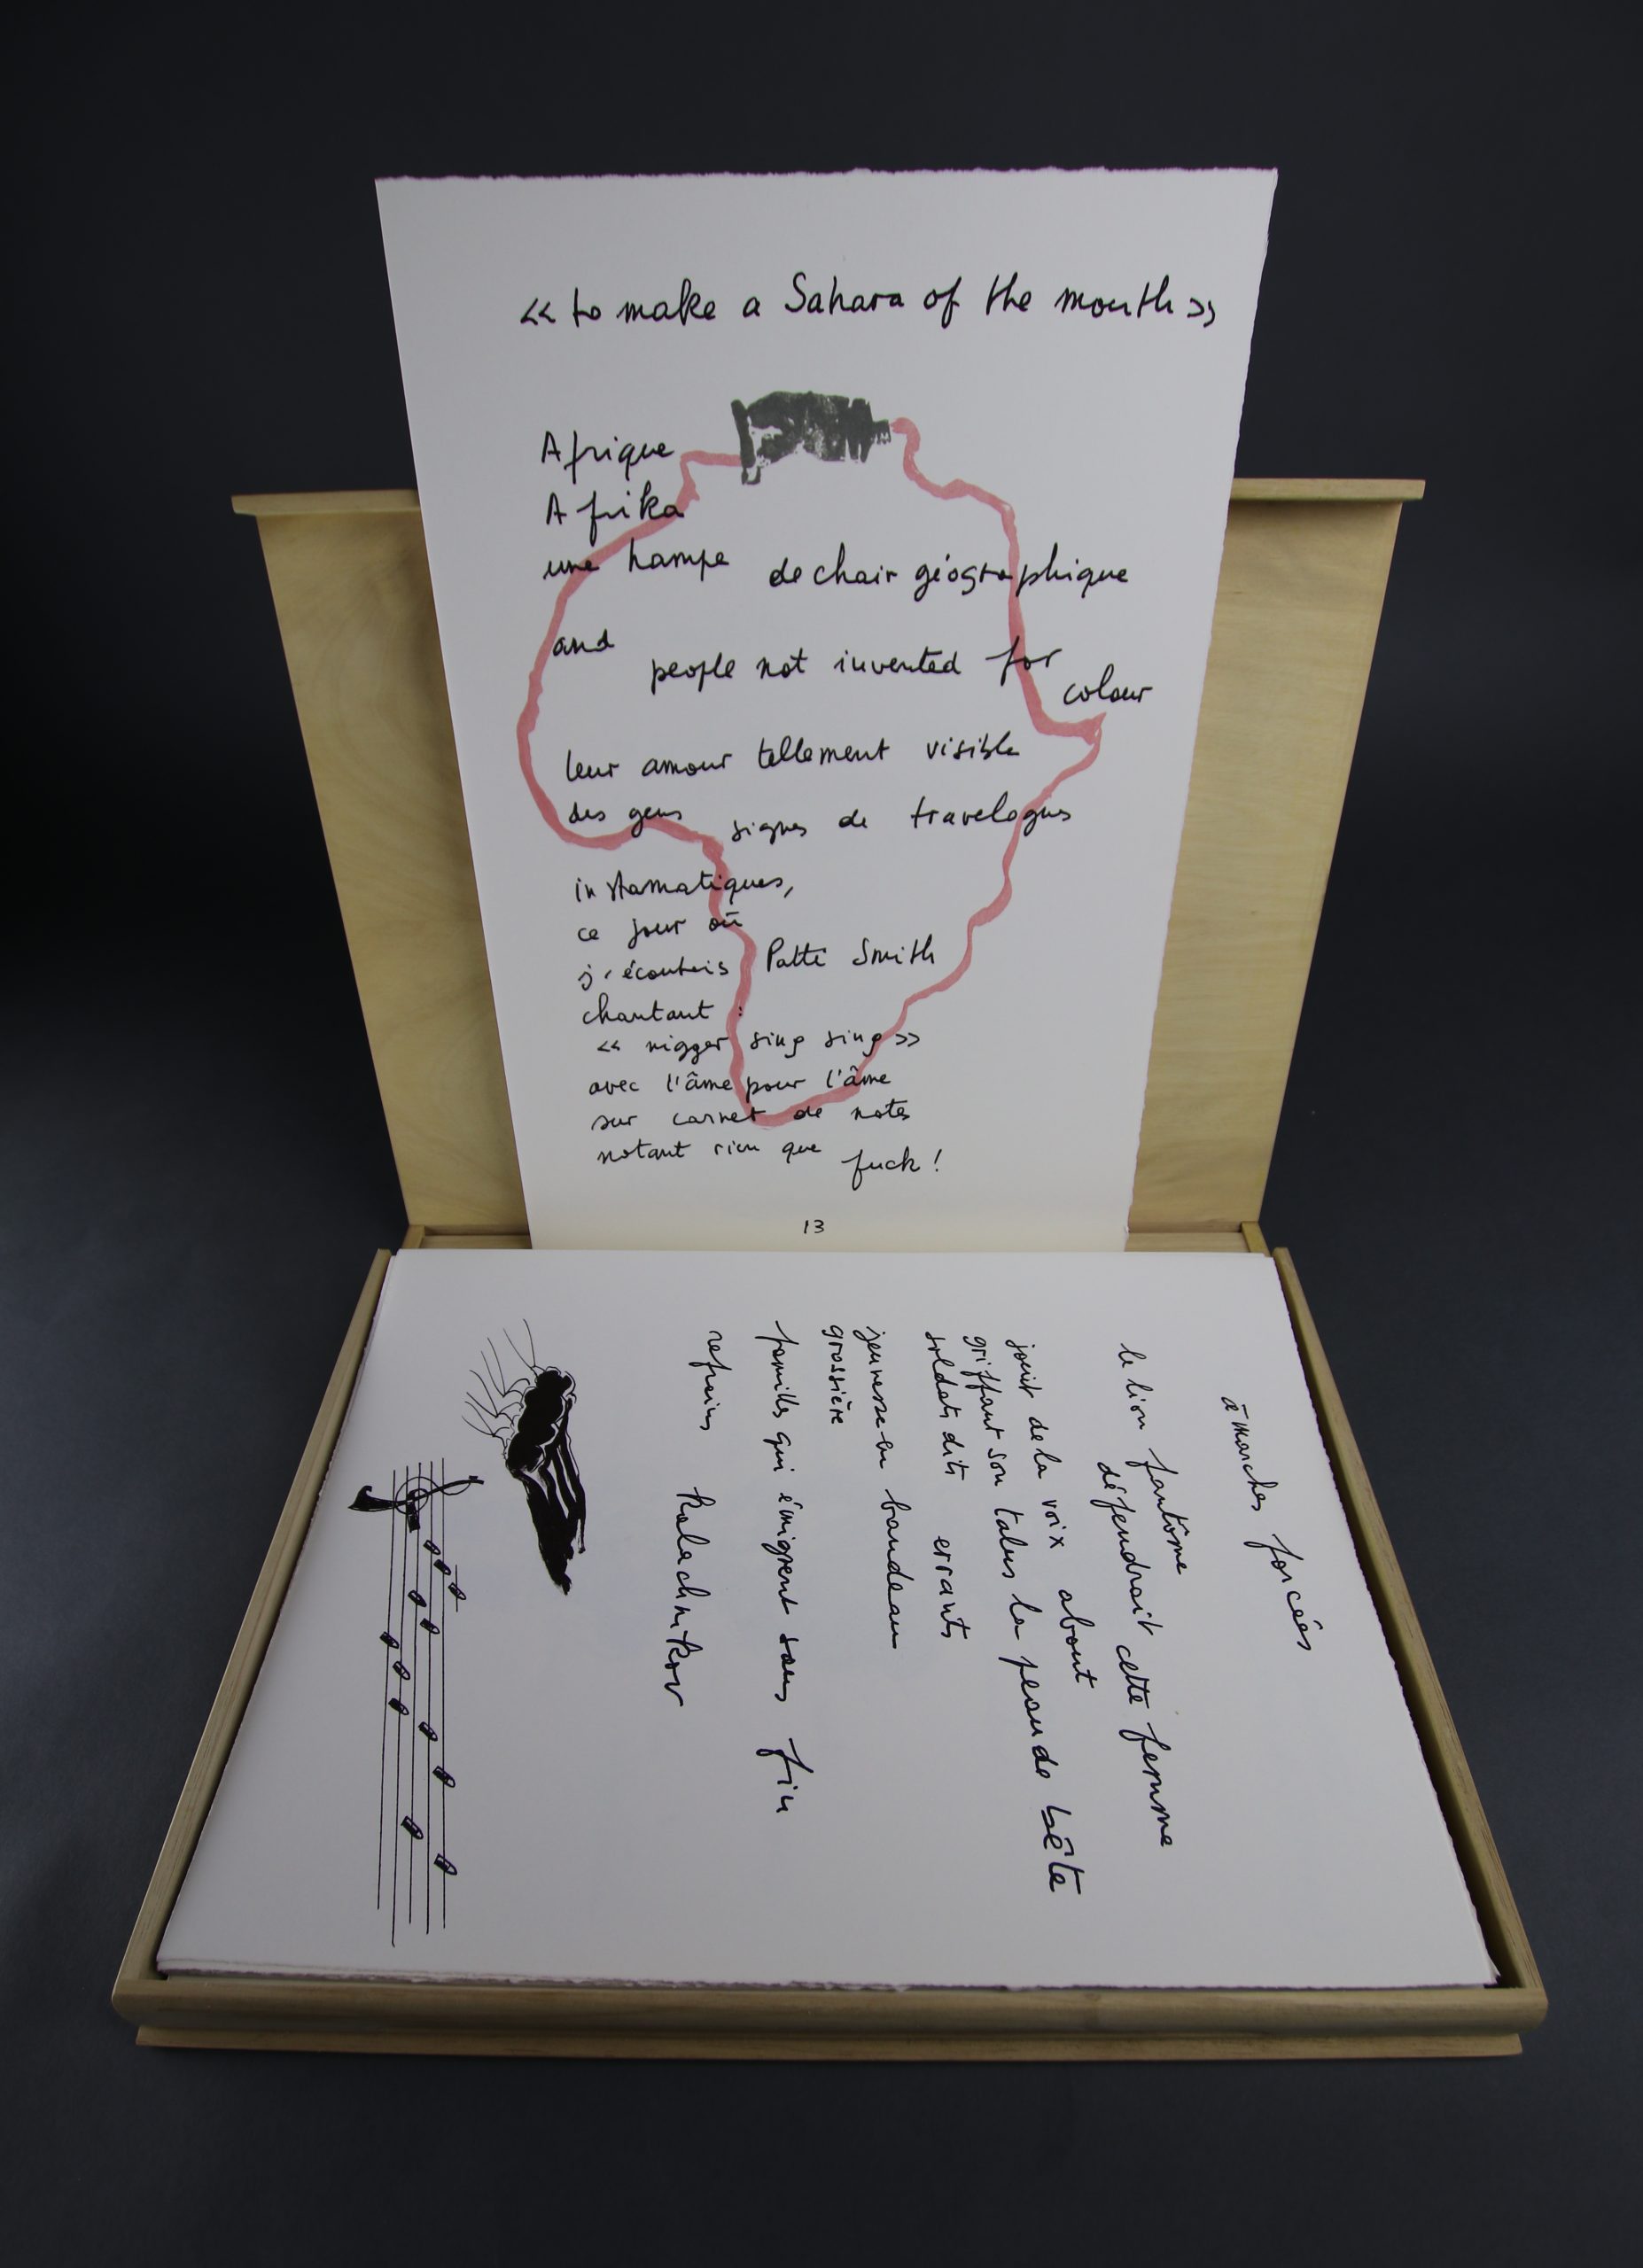 « to make a Sahara of the mouth »
Afrique
Afrika
une hampe de chair géographique
and people not invented for
colour
leur amour tellement visible
des gens signes de travelogues
instamatiques,
ce jour où
j'écoutais Patti Smith
chantant :
« nigger sing sing »
avec l'âme pour l'âme
sur carnet de notes
notant rien que fuck !
13
à marches forcées
le lion fantôme
défendrait cette femme
jouit de la voix about
griffant son talus la peau de bête
soldats dits errants
jeunesse en bandeau
grossière
familles qui émigrent sans fin
refrains Kalachnikov